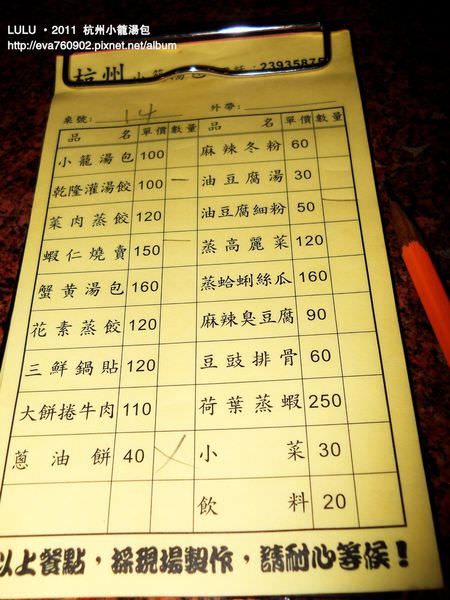 LULU • 2011 杭州小龍湯包
http://eva760902.pixnet.net/album
杭州小籠湯包
23935875
桌號: 14 外帶:
品名 單價 數量 品名 單價 數量
小龍湯包 100 麻辣冬粉 60
乾隆灌湯餃 100 一 油豆腐湯 30
菜肉蒸餃 120 油豆腐細粉 50
蝦仁燒賣 150 一 蒸高麗菜 120
蟹黃湯包 160 蒸蛤蜊絲瓜 160
花素蒸餃 120 麻辣臭豆腐 90
三鮮鍋貼 120 豆豉排骨 60
大餅捲牛肉 110 荷葉蒸蝦 250
蔥油餅 40 小菜 30
飲料 20
以上餐點,採現場製作,請耐心等候!